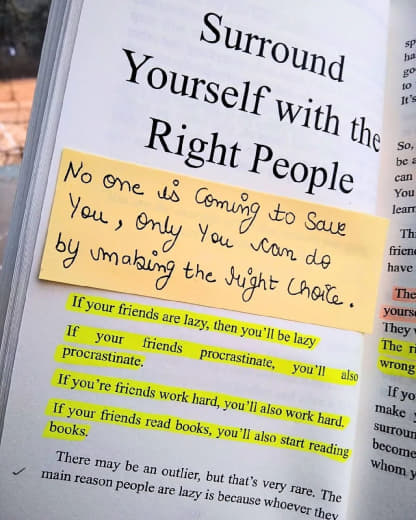 Surround
Yourself with the
Right People
No one is Coming to Save
You, only You can do
by making the right choice.
If your friends are lazy, then you'll be lazy
If your friends procrastinate, you'll also
procrastinate.
If you're friends work hard, you'll also work hard.
If your friends read books, you'll also start reading
books.
There may be an outlier, but that's very rare. The
main reason people are lazy is because whoever they
So,
be a
can
You
learn
friend
have
The
yourse
They v
The ri
wrong
If yo
make
surrou
become
whom y